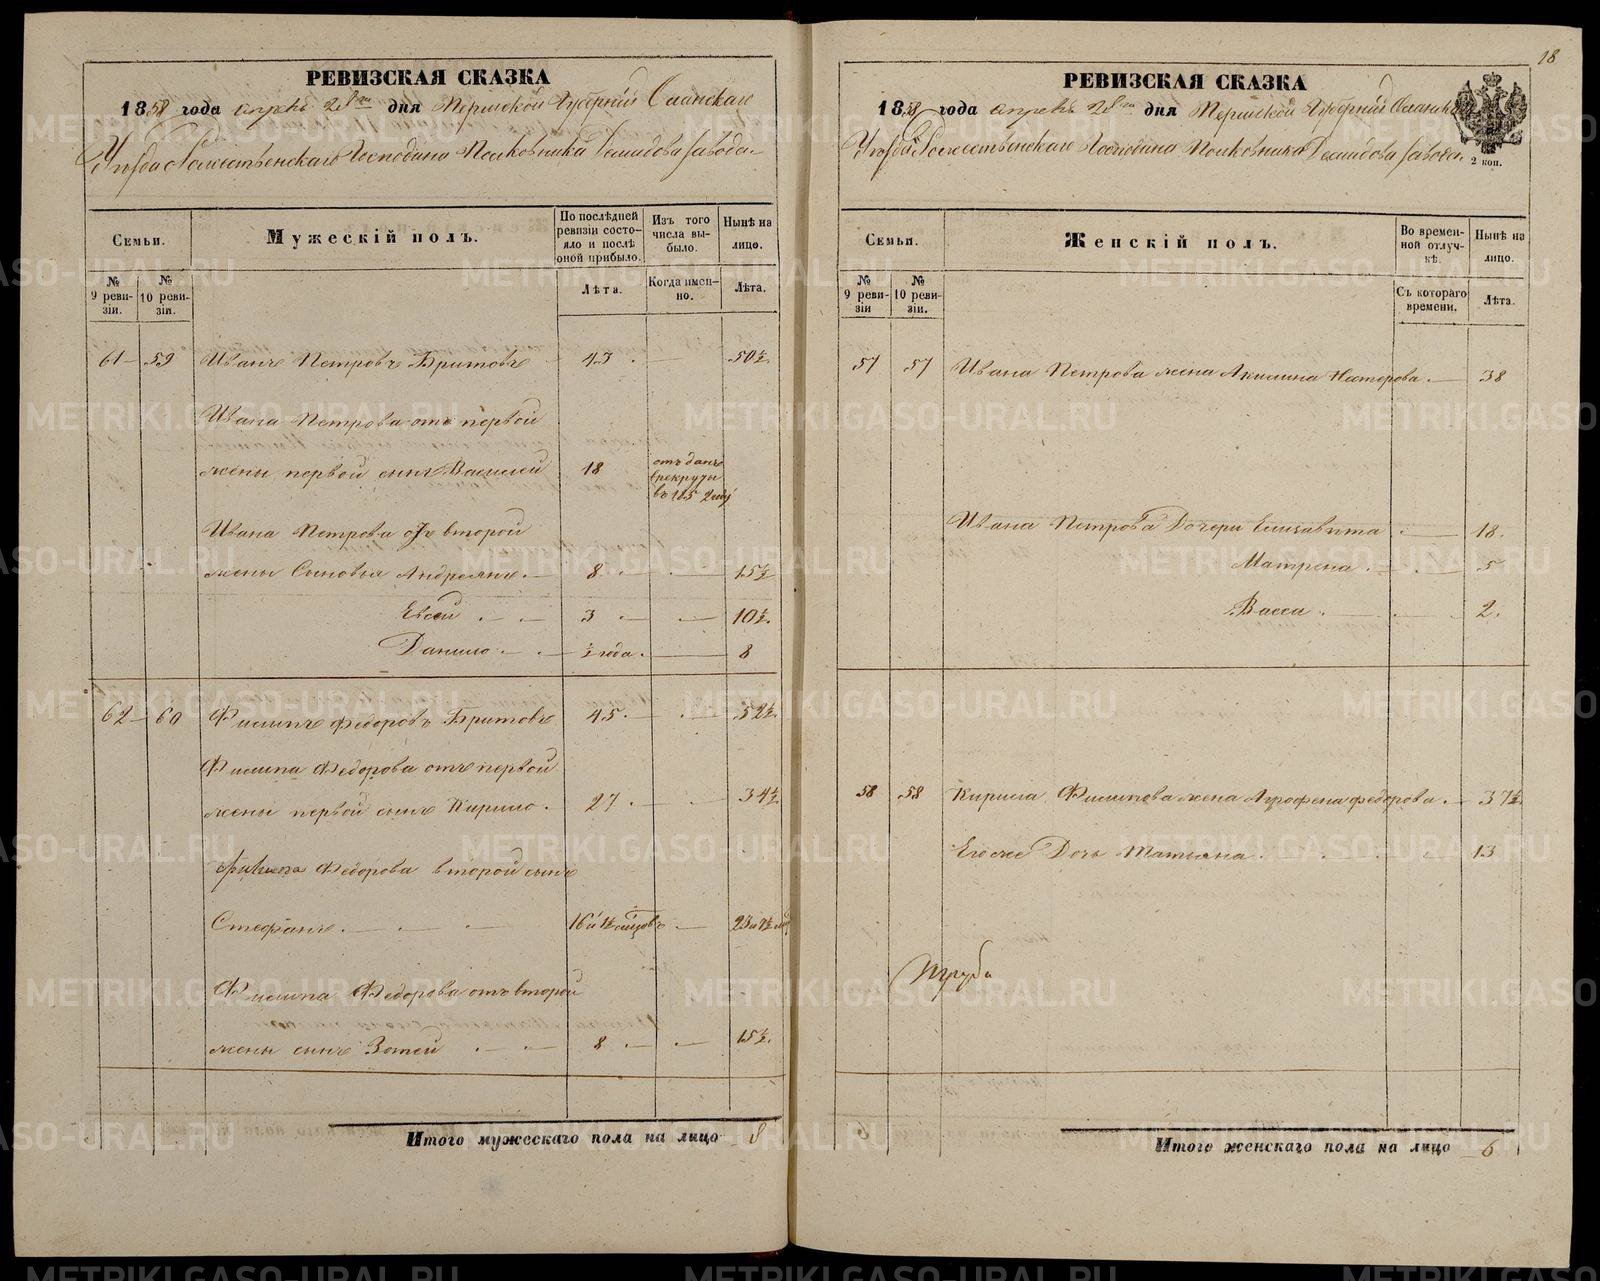 РЕВИЗСКАЯ СКАЗКА
1858 года апреля 28го дня Пермской Губернии Оханскаго
Уѣзда Рожественскаго Господина Полковника Демидова завода
Семьи.
Мужескій полъ.
По послѣдней ревизіи состояло и послѣ оной прибыло.
Изъ того числа выбыло.
Нынѣ на лицо.
№ 9 ревизіи.
№ 10 ревизіи.
Лѣта.
Когда именно.
Лѣта.
61 59 Иванъ Петровъ Бритовъ 43 50½
Ивана Петрова отъ первой
жены первой сынъ Василей 18 отъданъ
врекруты
въ 1852 году
Ивана Петрова отъ второй
жены Сыновья Андреянъ 8 15½
Евсей 3 10½
Данило ½ года 8
62 60 Филипъ Федоровъ Бритовъ 45 52½
Филипа Федорова отъ первой
жены первой сынъ Кирило 27 34½
Филипа Федорова второй сынъ
Стефанъ
Филипа Федорова отъ второй
жены сынъ Зотей 8 15½
Итого мужескаго пола на лицо 8
18
РЕВИЗСКАЯ СКАЗКА
1858 года апреля 28го дня Пермской Губернии Оханскаго
Уѣзда Рожественскаго Господина Полковника Демидова завода
2 коп.
Семьи.
Женскій полъ.
Во временной отлучкѣ.
Нынѣ на лицо.
№ 9 ревизіи
№ 10 ревизіи.
Съ котораго времени.
Лѣта.
57 57 Ивана Петрова жена Акилина Нестерова 38
Ивана Петрова Дочери Елизавѣта 18
Матрена 5
Васса 2
58 58 Кирила Филипова жена Агрофена Федорова 37½
Егоже Дочь Татьяна 13
Итого женскаго пола на лицо 6
METRIKI.GASO-URAL.RU